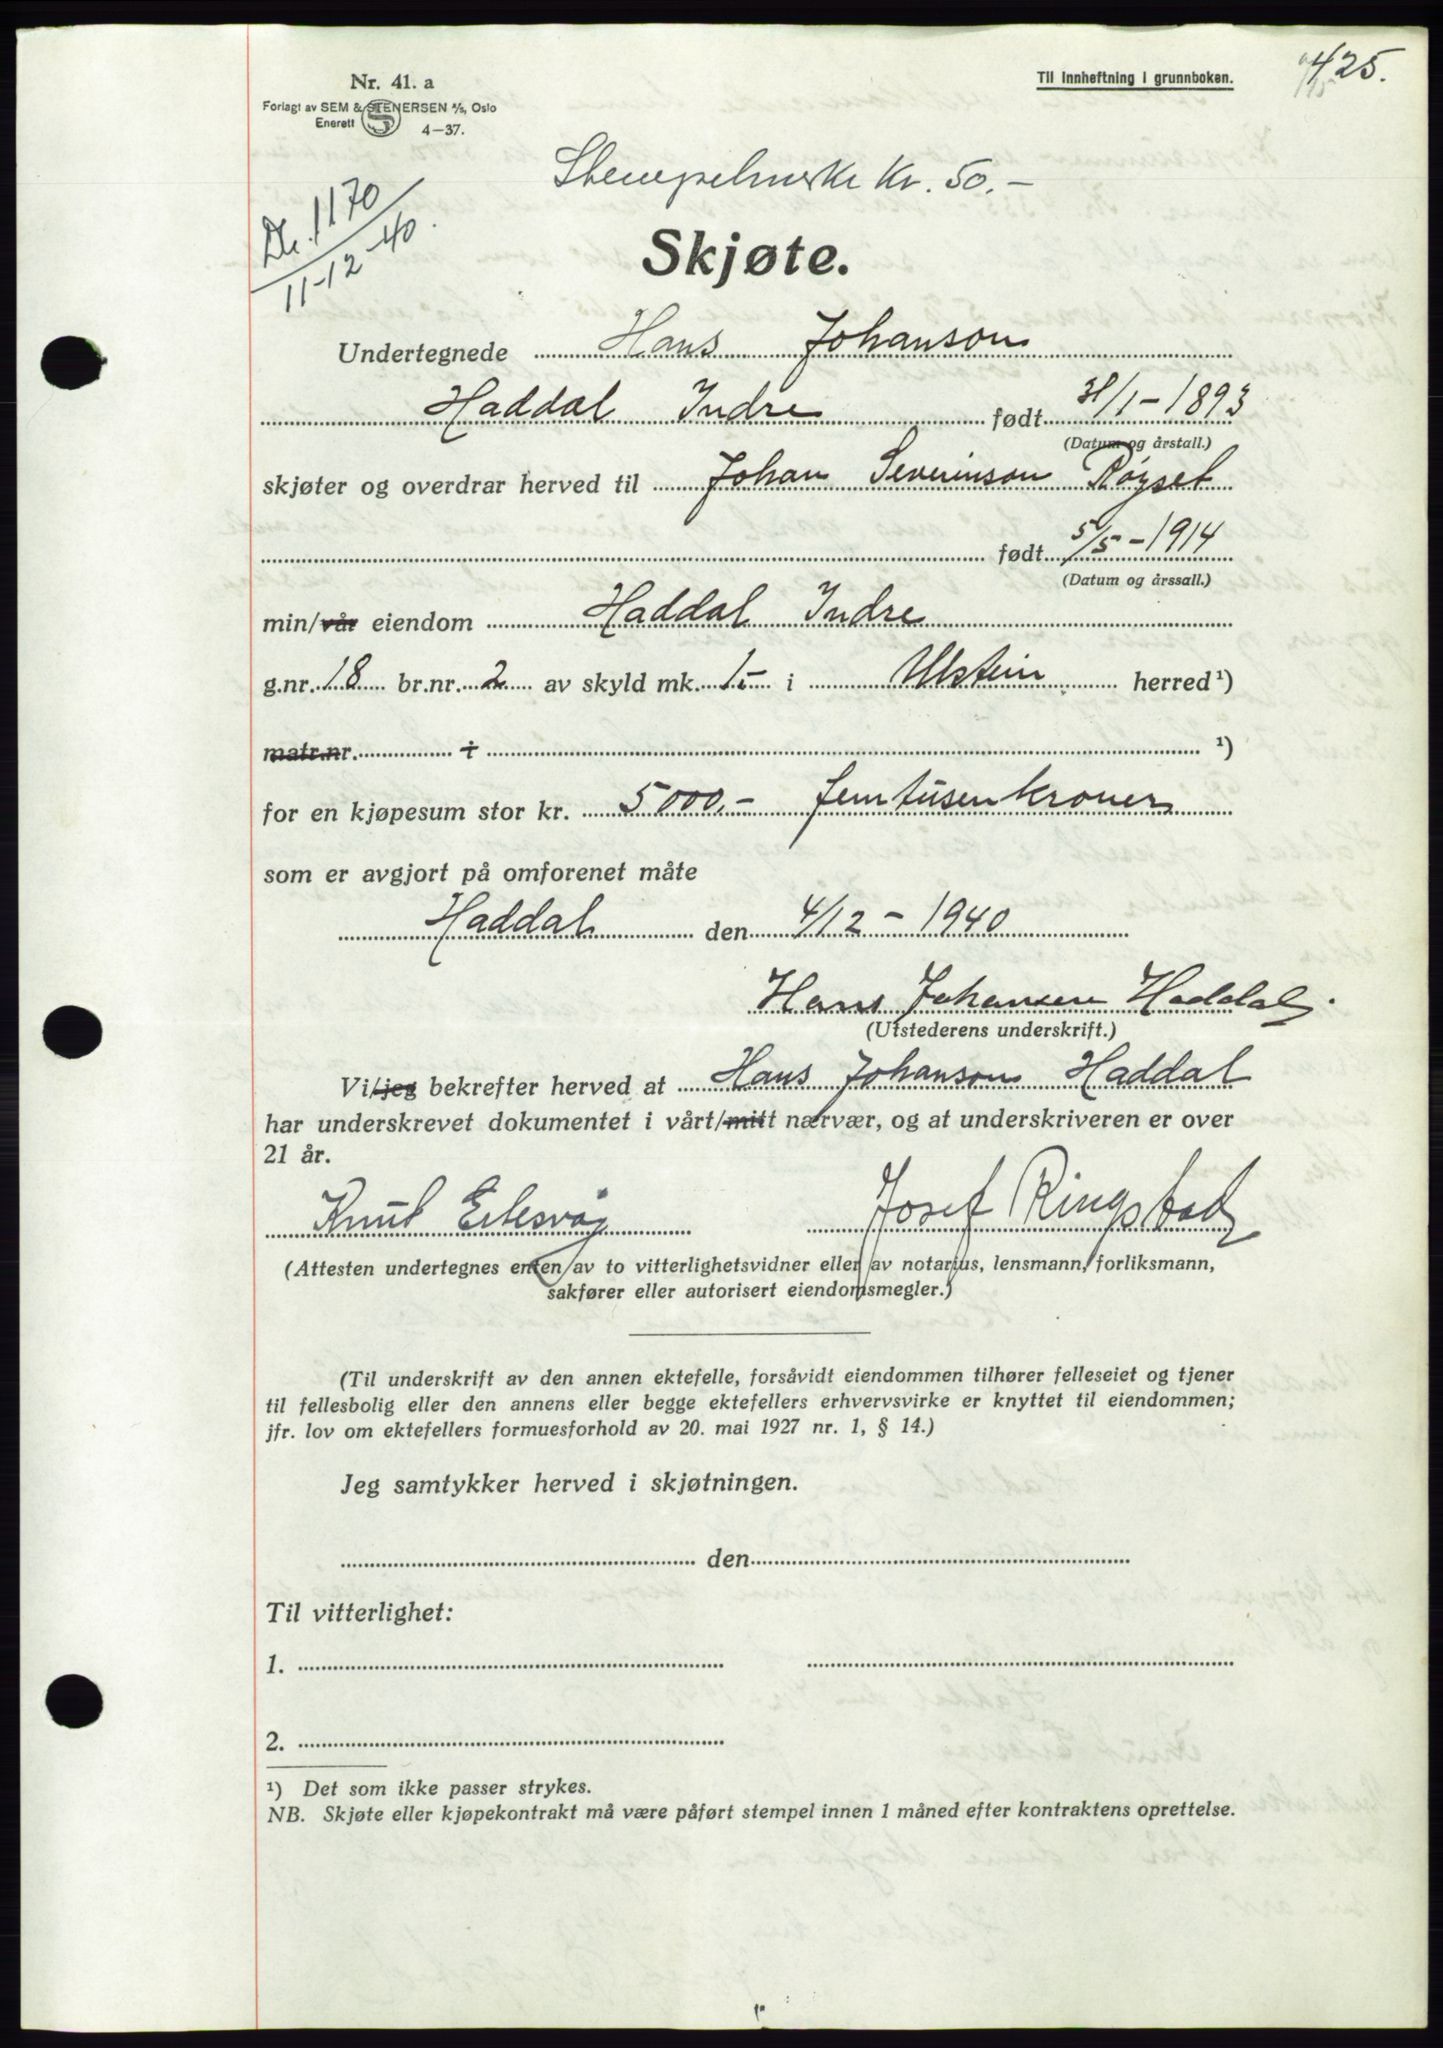 425.
Nr. 41. a
Til innheftning i grunnboken.
Forlagt av SEM & STENERSEN A/S, Oslo
Enerett
4—37.
Stempelmerke Kr. 50.-
Dr. 1170
11-12-40.
Skjøte.
Undertegnede Hans Johanson
Haddal Indre født 31/1-1893
(Datum og årstall.)
skjøter og overdrar herved til Johan Severinson Røyset
født 5/5-1914
(Datum og årssall.)
min/vår eiendom Haddal Indre
g.nr. 18 br.nr. 2 av skyld mk. 1,- i Ulstein herred¹)
matr.nr. i ¹)
for en kjøpesum stor kr. 5000,- femtusenkroner
som er avgjort på omforenet måte
Haddal den 4/12-1940
Hans Johansen Haddal.
(Utstederens underskrift.)
Vi/jeg bekrefter herved at Hans Johanson Haddal
har underskrevet dokumentet i vårt/mitt nærvær, og at underskriveren er over
21 år.
Knut Eilesvåg Josef Ringstad
(Attesten undertegnes enten av to vitterlighetsvidner eller av notarius, lensmann, forliksmann,
sakfører eller autorisert eiendomsmegler.)
(Til underskrift av den annen ektefelle, forsåvidt eiendommen tilhører felleseiet og tjener
til fellesbolig eller den annens eller begge ektefellers erhvervsvirke er knyttet til eiendommen;
jfr. lov om ektefellers formuesforhold av 20. mai 1927 nr. 1, § 14.)
Jeg samtykker herved i skjøtningen.
den
Til vitterlighet:
1.
2.
¹) Det som ikke passer strykes.
NB. Skjøte eller kjøpekontrakt må være påført stempel innen 1 måned efter kontraktens oprettelse.